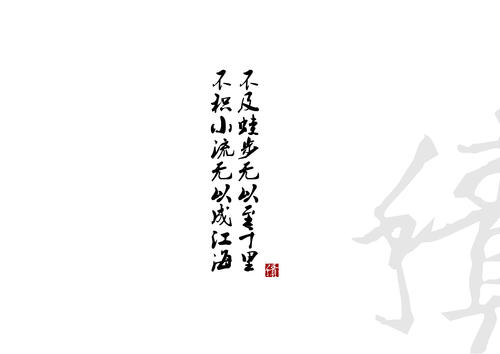 不及蛙步无以至千里
不积小流无以成江海